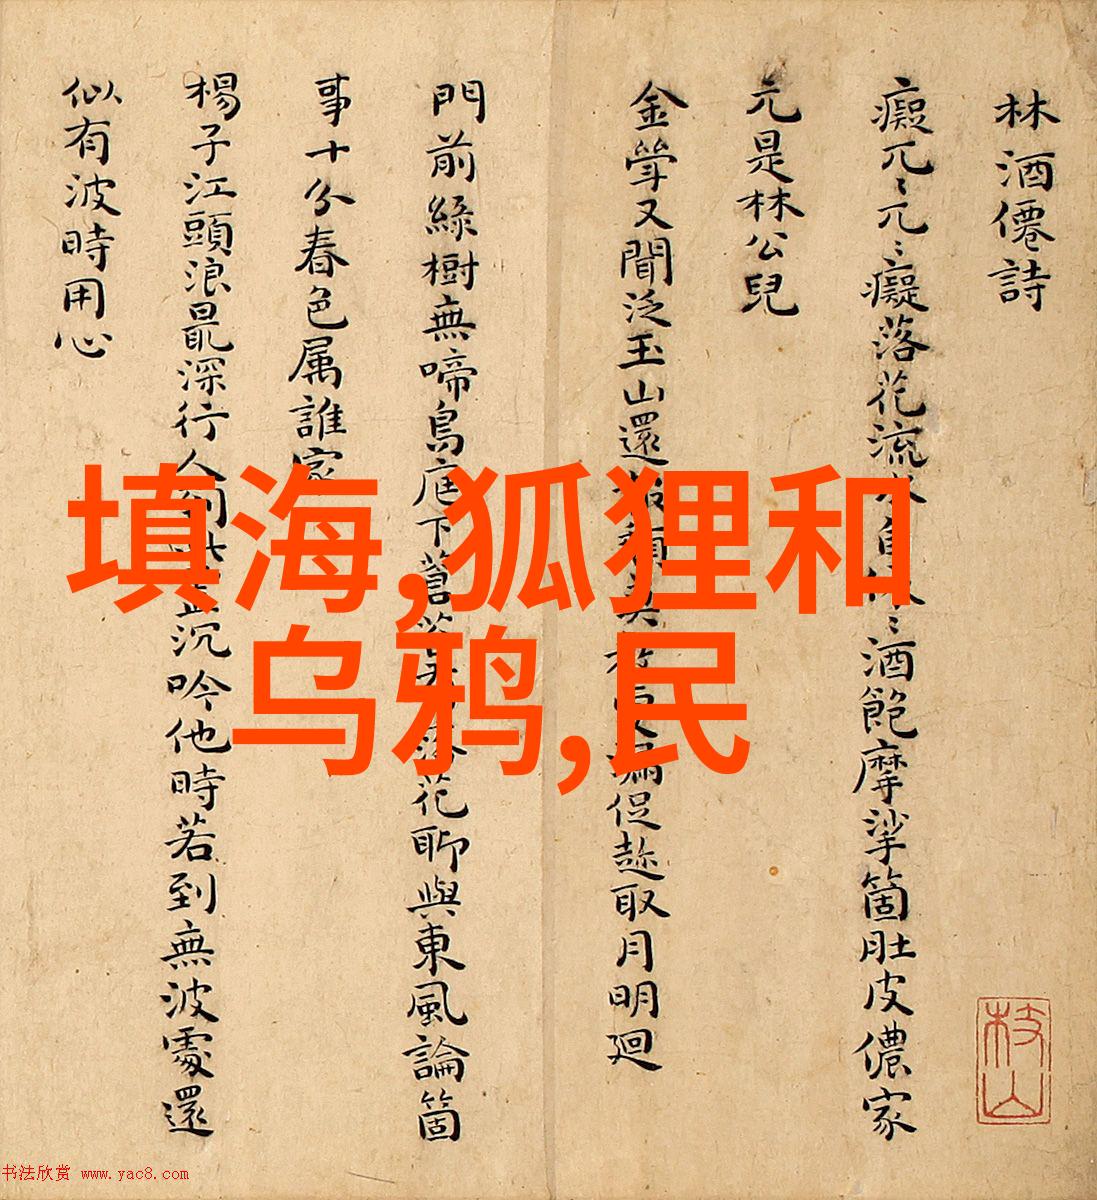 林酒僊詩
癡兀〻兀〻癡落花流
〻酒飽摩挲箇肚皮儂家
元是林公兒
金斝又聞泛玉山還
促趂取月明廻
門前綠樹無啼鳥庭下蒼
落花聊與東風論箇
事十分春色属誰家
楊子江頭浪最深行人
沉吟他時若到無波處還
似有波時用心
枝山
填海,狐狸和
乌鸦,民
书法欣赏 www.yac8.com